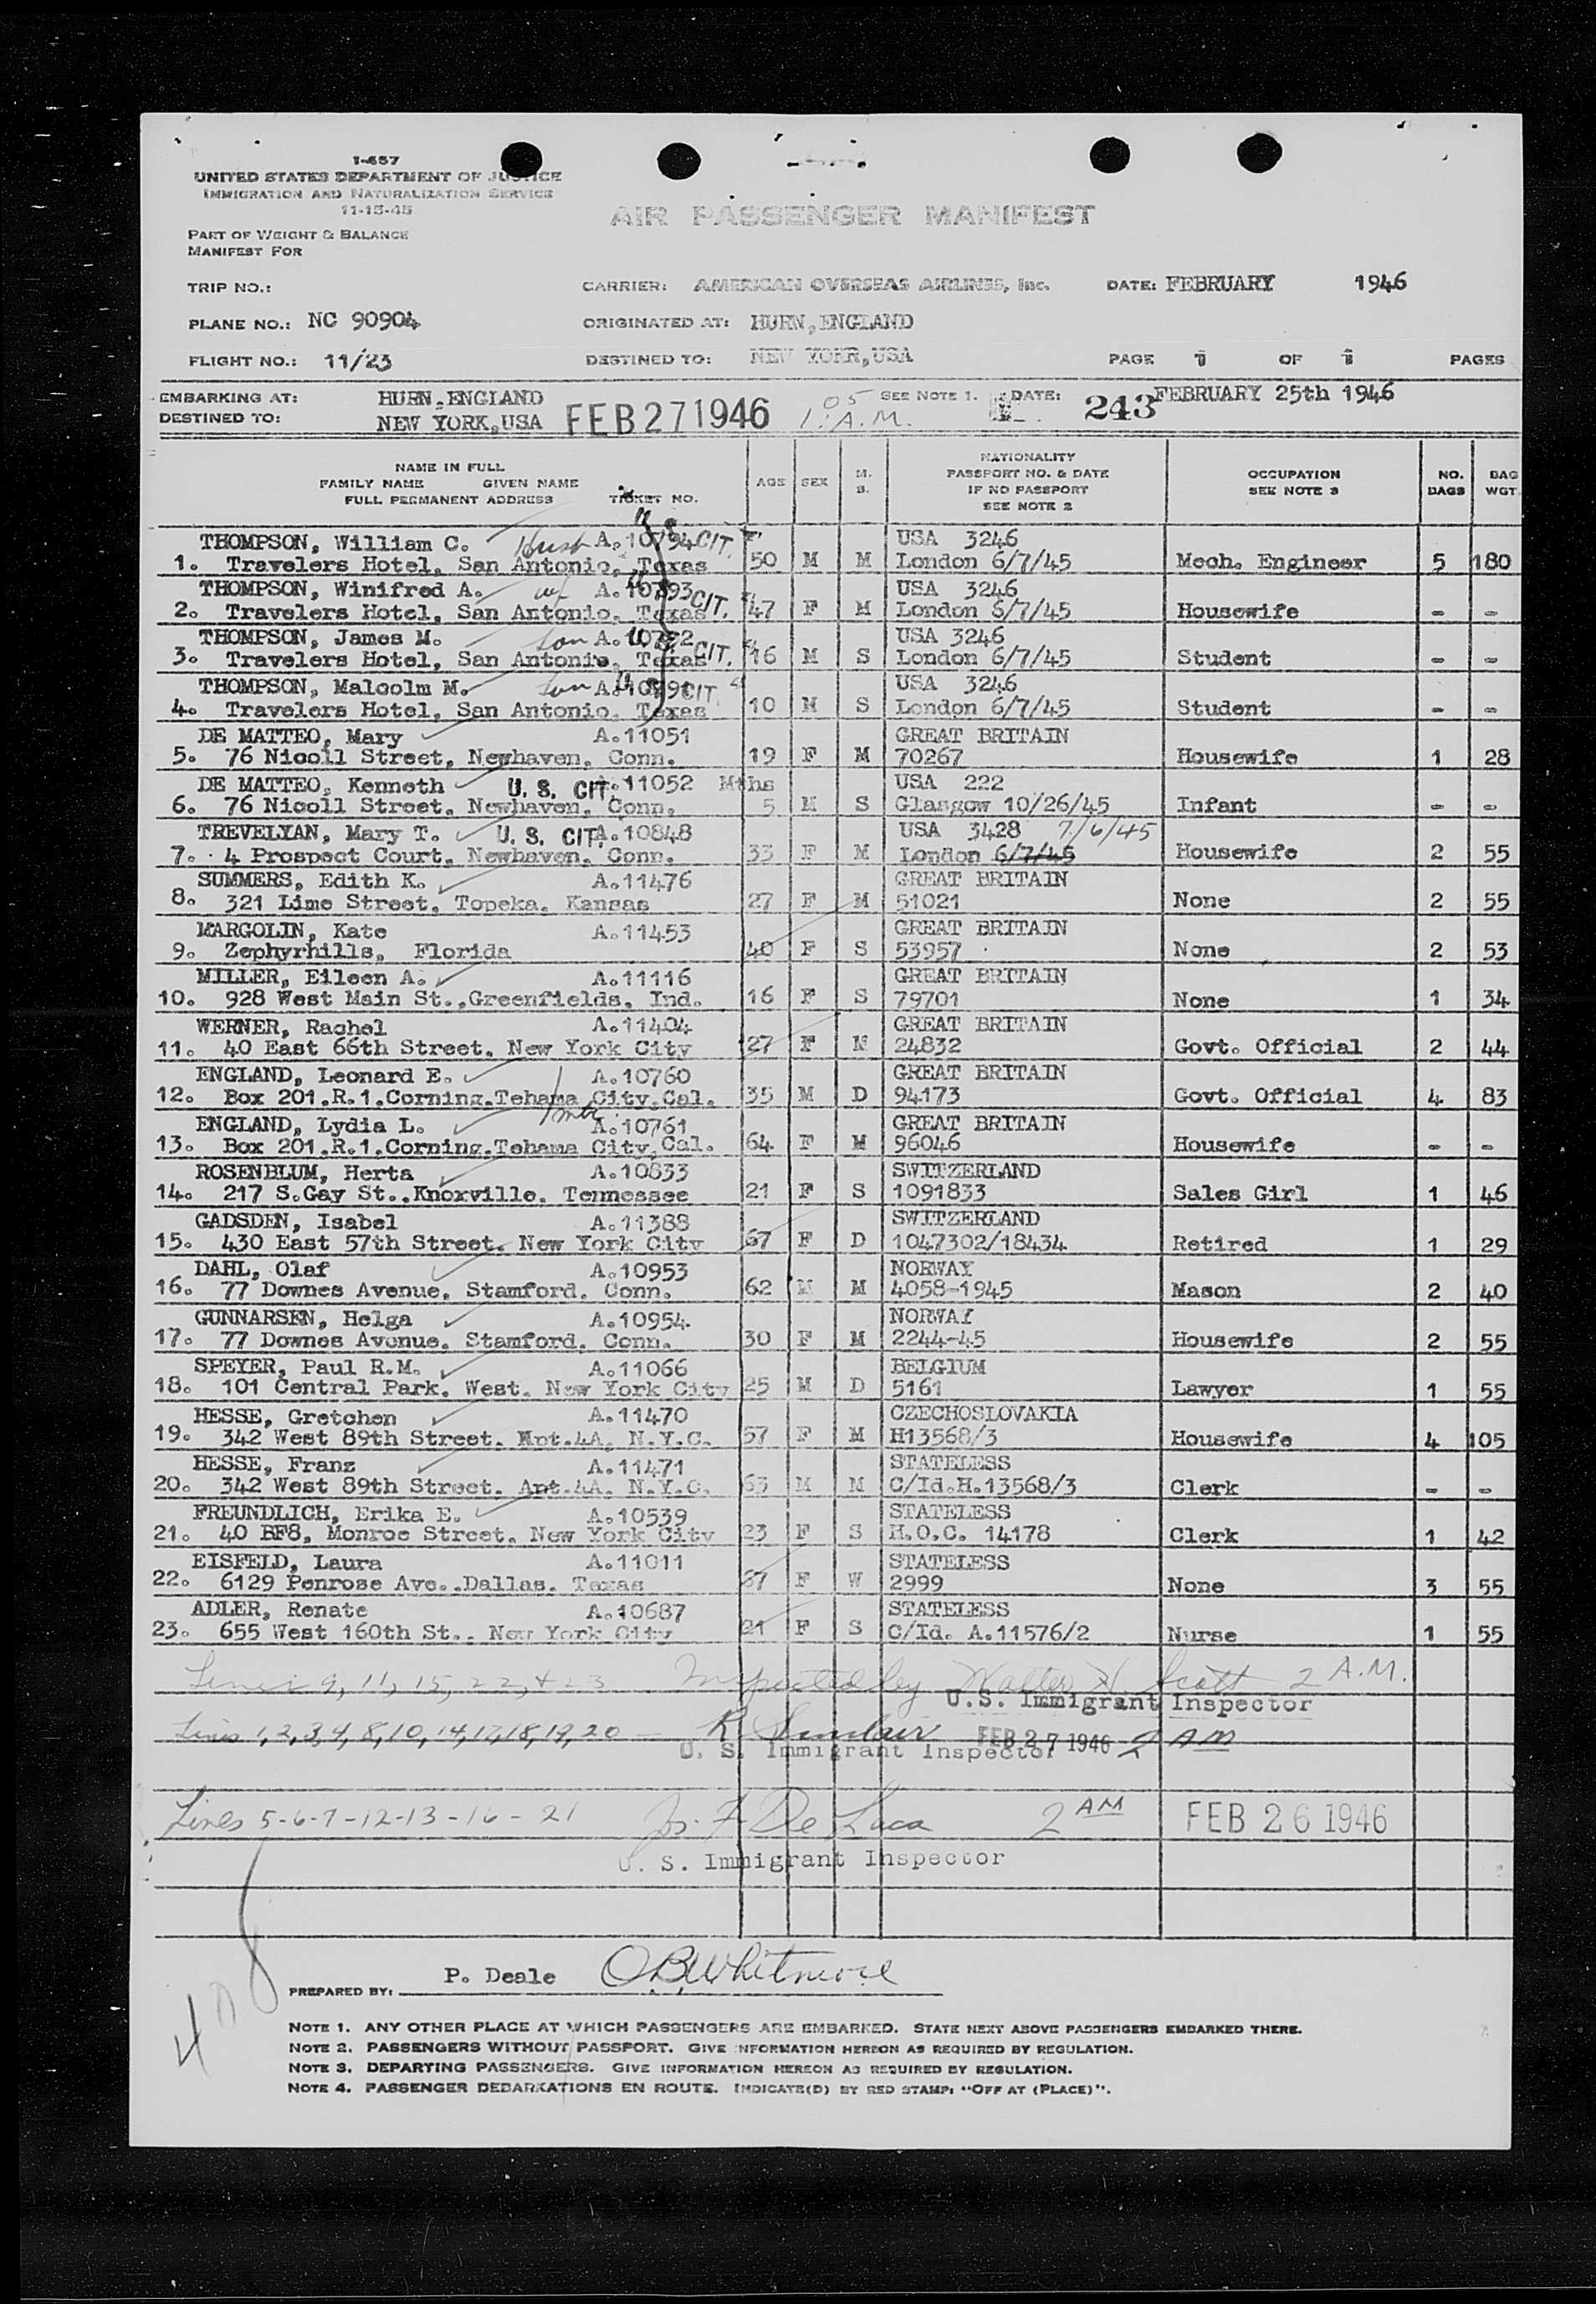 I-457
UNITED STATES DEPARTMENT OF JUSTICE
IMMIGRATION AND NATURALIZATION SERVICE
11-15-45
AIR PASSENGER MANIFEST
PART OF WEIGHT & BALANCE
MANIFEST FOR
TRIP NO.: CARRIER: AMERICAN OVERSEAS AIRLINES, Inc. DATE: FEBRUARY 1946
PLANE NO.: NC 90904 ORIGINATED AT: HURN, ENGLAND
FLIGHT NO.: 11/23 DESTINED TO: NEW YORK, USA PAGE 1 OF 1 PAGES
EMBARKING AT: HURN, ENGLAND SEE NOTE 1. DATE: FEBRUARY 25th 1946
DESTINED TO: NEW YORK, USA FEB 27 1946 1:05 A.M. 243
NAME IN FULL
FAMILY NAME GIVEN NAME
FULL PERMANENT ADDRESS TICKET NO.
AGE SEX M. S.
NATIONALITY
PASSPORT NO. & DATE
IF NO PASSPORT
SEE NOTE 2
OCCUPATION
SEE NOTE 3
NO. BAGS
BAG WGT.
THOMPSON, William C. Husb A.10794 CIT. USA 3246
1. Travelers Hotel, San Antonio, Texas 50 M M London 6/7/45 Mech. Engineer 5 180
THOMPSON, Winifred A. wf A.10793 CIT. USA 3246
2. Travelers Hotel, San Antonio, Texas 47 F M London 6/7/45 Housewife - -
THOMPSON, James M. son A.10792 CIT. USA 3246
3. Travelers Hotel, San Antonio, Texas 16 M S London 6/7/45 Student - -
THOMPSON, Malcolm M. son A.10791 CIT. USA 3246
4. Travelers Hotel, San Antonio, Texas 10 M S London 6/7/45 Student - -
DE MATTEO, Mary A.11051 GREAT BRITAIN
5. 76 Nicoll Street, Newhaven, Conn. 19 F M 70267 Housewife 1 28
DE MATTEO, Kenneth U. S. CIT. 11052 Mths USA 222
6. 76 Nicoll Street, Newhaven, Conn. 5 M S Glasgow 10/26/45 Infant - -
TREVELYAN, Mary T. U. S. CIT. A.10848 USA 3428 7/6/45
7. 4 Prospect Court, Newhaven, Conn. 33 F M London 6/7/45 Housewife 2 55
SUMMERS, Edith K. A.11476 GREAT BRITAIN
8. 321 Lime Street, Topeka, Kansas 27 F M 51021 None 2 55
MARGOLIN, Kate A.11453 GREAT BRITAIN
9. Zephyrhills, Florida 40 F S 53957 None 2 53
MILLER, Eileen A. A.11116 GREAT BRITAIN
10. 928 West Main St.,Greenfields, Ind. 16 F S 79701 None 1 34
WERNER, Rachel A.11404 GREAT BRITAIN
11. 40 East 66th Street, New York City 27 F M 24832 Govt. Official 2 44
ENGLAND, Leonard E. A.10760 GREAT BRITAIN
12. Box 201.R.1.Corning.Tehama City.Cal. 35 M D 94173 Govt. Official 4 83
ENGLAND, Lydia L. A.10761 GREAT BRITAIN
13. Box 201.R.1.Corning.Tehama City.Cal. 64 F M 96046 Housewife - -
ROSENBLUM, Herta A.10833 SWITZERLAND
14. 217 S.Gay St.,Knoxville, Tennessee 21 F S 1091833 Sales Girl 1 46
GADSDEN, Isabel A.11388 SWITZERLAND
15. 430 East 57th Street, New York City 67 F D 1047302/18434 Retired 1 29
DAHL, Olaf A.10953 NORWAY
16. 77 Downes Avenue, Stamford, Conn. 62 M M 4058-1945 Mason 2 40
GUNNARSEN, Helga A.10954 NORWAY
17. 77 Downes Avenue, Stamford, Conn. 30 F M 2244-45 Housewife 2 55
SPEYER, Paul R.M. A.11066 BELGIUM
18. 101 Central Park, West, New York City 25 M D 5161 Lawyer 1 55
HESSE, Gretchen A.11470 CZECHOSLOVAKIA
19. 342 West 89th Street. Apt.4A, N.Y.C. 57 F M H13568/3 Housewife 4 105
HESSE, Franz A.11471 STATELESS
20. 342 West 89th Street. Apt.4A. N.Y.C. 63 M M C/Id.H.13568/3 Clerk - -
FREUNDLICH, Erika E. A.10539 STATELESS
21. 40 BF8, Monroe Street, New York City 23 F S H.O.C. 14178 Clerk 1 42
EISFELD, Laura A.11011 STATELESS
22. 6129 Penrose Ave.,Dallas, Texas 67 F W 2999 None 3 55
ADLER, Renate A.10687 STATELESS
23. 655 West 160th St., New York City 21 F S C/Id. A.11576/2 Nurse 1 55
Lines 9, 11, 15, 22, + 23 Inspected by Walter H. Scott 2 A.M.
U.S. Immigrant Inspector
Lines 1, 2, 3, 4, 8, 10, 14, 17, 18, 19, 20 — R Sinclair FEB 27 1946 2 AM
U. S. Immigrant Inspector
Lines 5-6-7-12-13-16-21 Jos. F De Luca 2 AM FEB 26 1946
U. S. Immigrant Inspector
408
PREPARED BY: P. Deale OBWhitmore
NOTE 1. ANY OTHER PLACE AT WHICH PASSENGERS ARE EMBARKED. STATE NEXT ABOVE PASSENGERS EMBARKED THERE.
NOTE 2. PASSENGERS WITHOUT PASSPORT. GIVE INFORMATION HEREON AS REQUIRED BY REGULATION.
NOTE 3. DEPARTING PASSENGERS. GIVE INFORMATION HEREON AS REQUIRED BY REGULATION.
NOTE 4. PASSENGER DEBARKATIONS EN ROUTE. INDICATE(D) BY RED STAMP: "OFF AT (PLACE)".